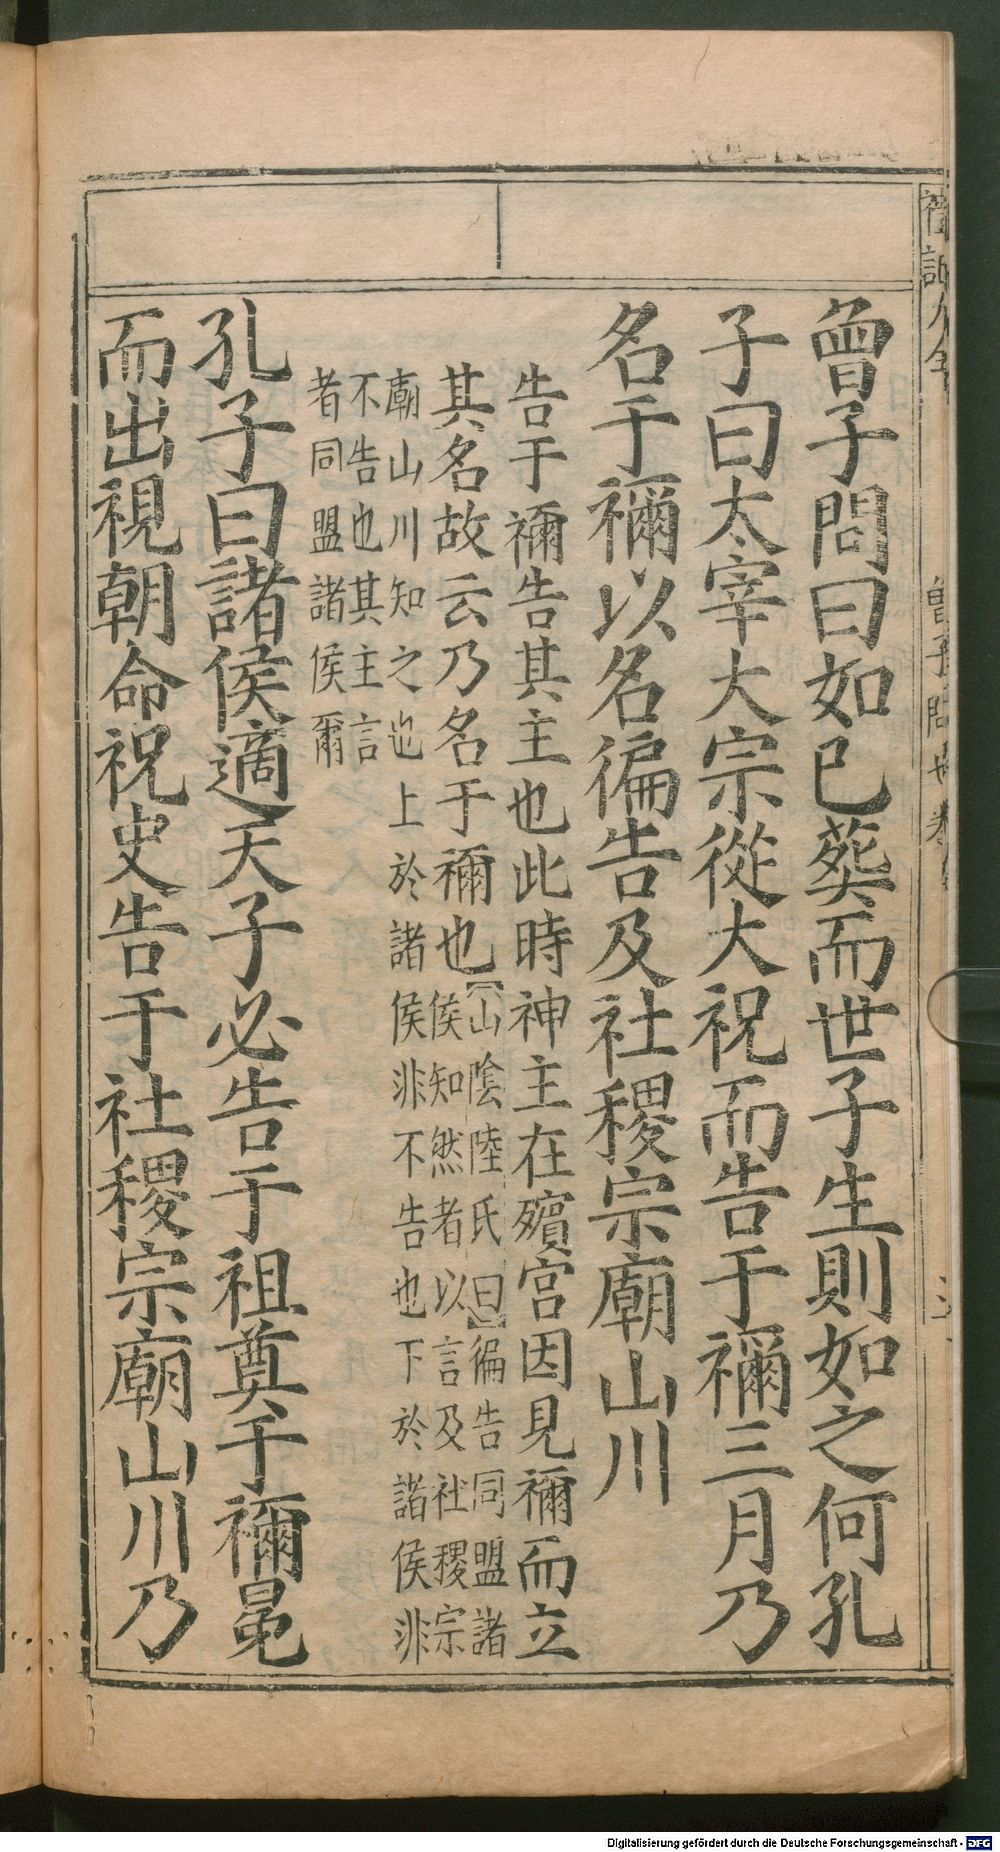 曾子問曰如已葬而世子生則如之何孔
子曰太宰大宗從大祝而告于禰三月乃
名于禰以名徧告及社稷宗廟山川
告于禰告其主也此時神主在殯宮因見禰而立
其名故云乃名于禰也【山陰陸氏曰】徧告同盟諸
侯知然者以言及社稷宗
廟山川知之也上於諸侯非不告也下於諸侯非
不告也其主言
者同盟諸侯爾
孔子曰諸侯適天子必告于祖奠于禰冕
而出視朝命祝史告于社稷宗廟山川乃
Digitalisierung gefördert durch die Deutsche Forschungsgemeinschaft - DFG